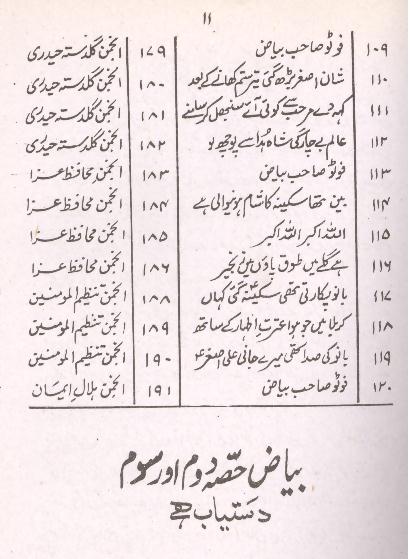 ۱۱
۱۰۹ فوٹو صاحب بیاض ۱۷۹ انجمن گلدستہ حیدری
۱۱۰ شان اصغر بڑھ گئی تیر ستم کھانے کے بعد ۱۸۰ انجمن گلدستہ حیدری
۱۱۱ کہہ دے مرحب سے کوئی آئے سنبھل کر سامنے ۱۸۱ انجمن گلدستہ حیدری
۱۱۲ عالم بے چارگی شاہ ہدا سے پوچھ لو ۱۸۲ انجمن گلدستہ حیدری
۱۱۳ فوٹو صاحب بیاض ۱۸۳ انجمن محافظ عزا
۱۱۴ بین تھا سکینہ کا شام ہونیوالی ہے ۱۸۴ انجمن محافظ عزا
۱۱۵ اللہ اکبر اللہ اکبر ۱۸۵ انجمن محافظ عزا
۱۱۶ ہے گلے میں طوق پاؤں میں زنجیر ۱۸۶ انجمن محافظ عزا
۱۱۷ بانو پکارتی تھی سکینہ گئی کہاں ۱۸۸ انجمن تنظیم المومنین
۱۱۸ کربلا میں جو ہوا عترت اطہار کے ساتھ ۱۸۹ انجمن تنظیم المومنین
۱۱۹ بانو کی صدا تھی میرے جانی علی اصغر ۱۹۰ انجمن تنظیم المومنین
۱۲۰ فوٹو صاحب بیاض ۱۹۱ انجمن ہلال ایمان
بیاض حصہ دوم اور سوم
دستیاب ہے